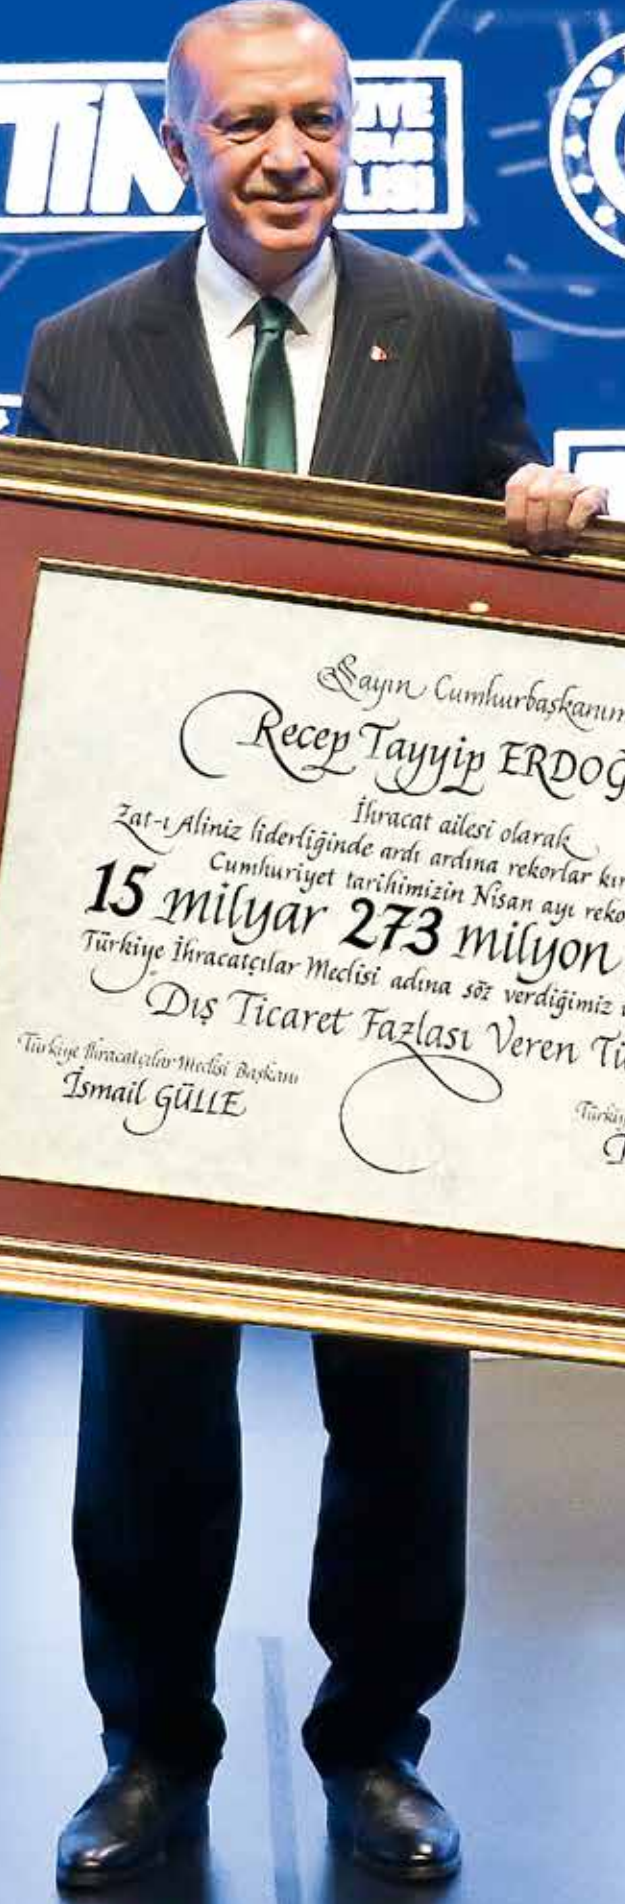 TİM
Sayın Cumhurbaşkanım
Recep Tayyip ERDOĞ
İhracat ailesi olarak
Zat-ı Aliniz liderliğinde ardı ardına rekorlar kır
Cumhuriyet tarihimizin Nisan ayı reko
15 milyar 273 milyon
Türkiye İhracatçılar Meclisi adına söz verdiğimiz
Dış Ticaret Fazlası Veren Tü
Türkiye İhracatçılar Meclisi Başkanı
İsmail GÜLLE
Türkiy